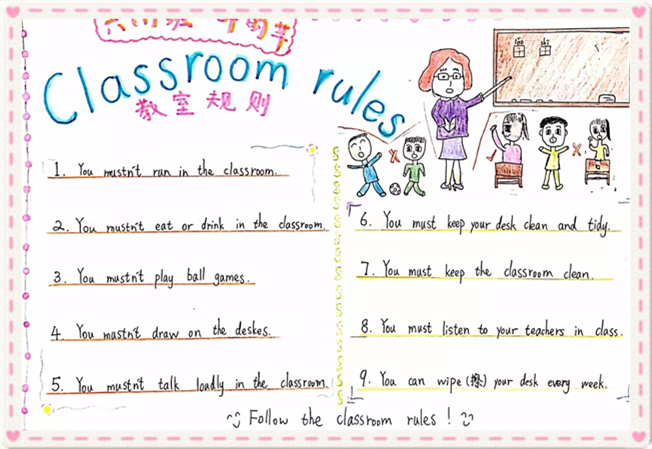 班
Classroom rules
教室规则
1. You mustn't run in the classroom.
2. You mustn't eat or drink in the classroom.
3. You mustn't play ball games.
4. You mustn't draw on the deskes.
5. You mustn't talk loudly in the classroom.
6. You must keep your desk clean and tidy.
7. You must keep the classroom clean.
8. You must listen to your teachers in class.
9. You can wipe (擦) your desk every week.
Follow the classroom rules !